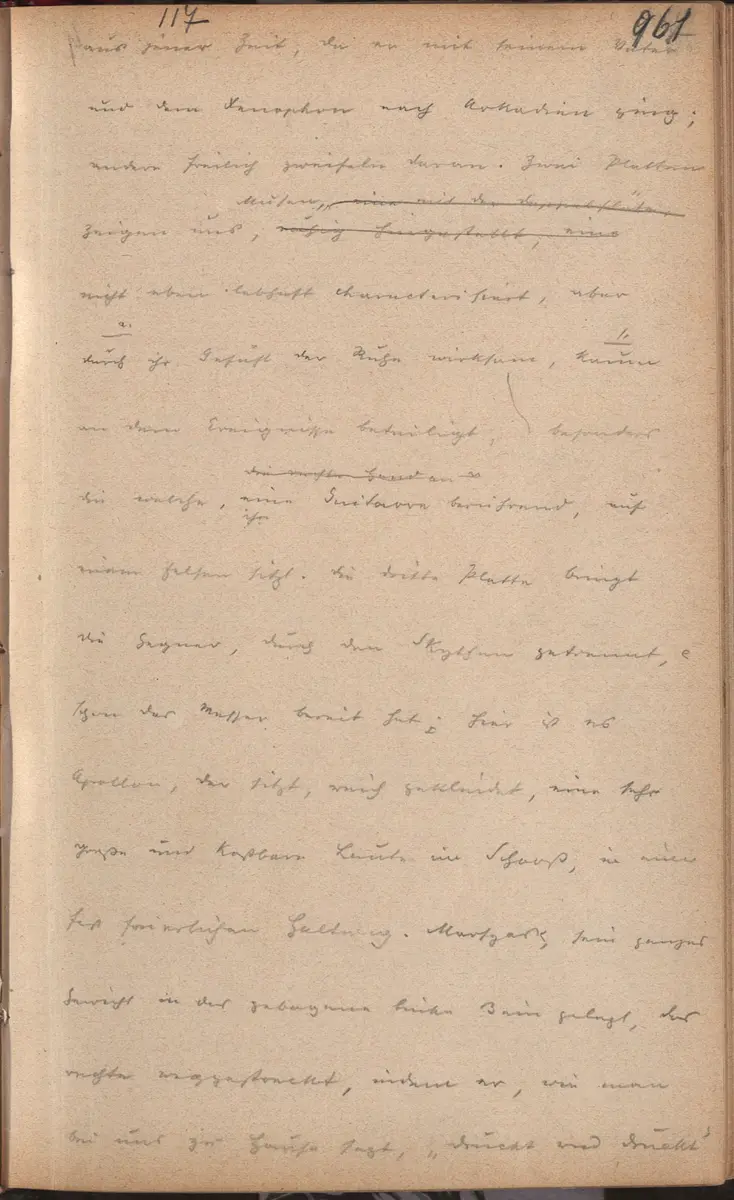 117
961
aus jener Zeit, da er mit seinem Vater
und dem Xenophon nach Arkadien ging;
andere freilich zweifeln daran. Zwei Platten
Musen, eine mit der Doppelflöte,
zeigen uns, ruhig hingestellt, eine
nicht eben lebhaft characterisiert, aber
a.
durch ihr Gefühl der Ruhe wirksam, kaum
an dem Ereignisse beteiligt, besonders
die rechte Hand an
die welche, eine Guitarre berührend, auf
ihr
einem Felsen sitzt. Die dritte Platte bringt
die Gegner, durch den Skythen getrennt,
schon das Messer bereit hat; hier ist es
Apollon, der sitzt, reich gekleidet, eine sehr
große und kostbare Laute im Schooß, in einer
fast feierlichen Haltung. Marsyas, sein ganzes
Gewicht in das gebogene linke Bein gelegt, das
rechte weggestreckt, indem er, wie man
bei uns zu Hause sagt, „druckt und druckt"